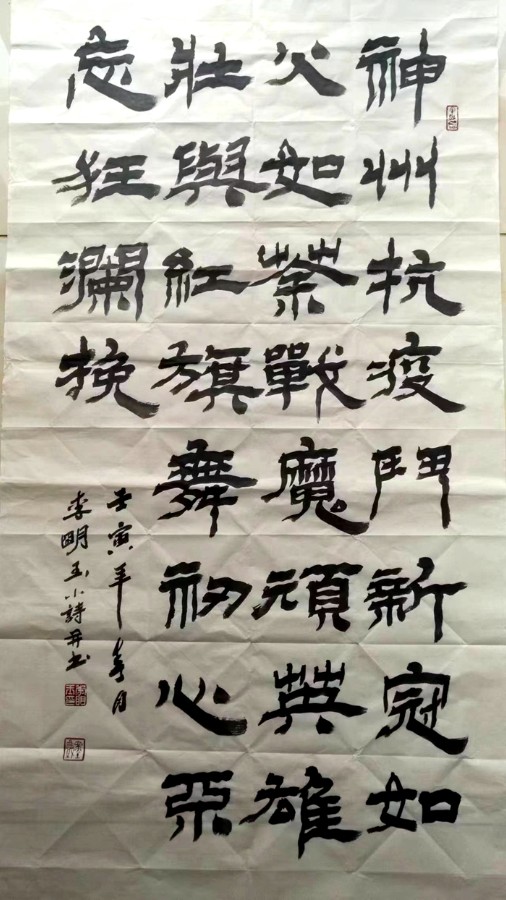 神州抗疫鬥新冠如
火如荼戰魔頑英雄
壯與紅旗舞初心不
忘狂瀾挽
壬寅年春月
李明玉小詩并书